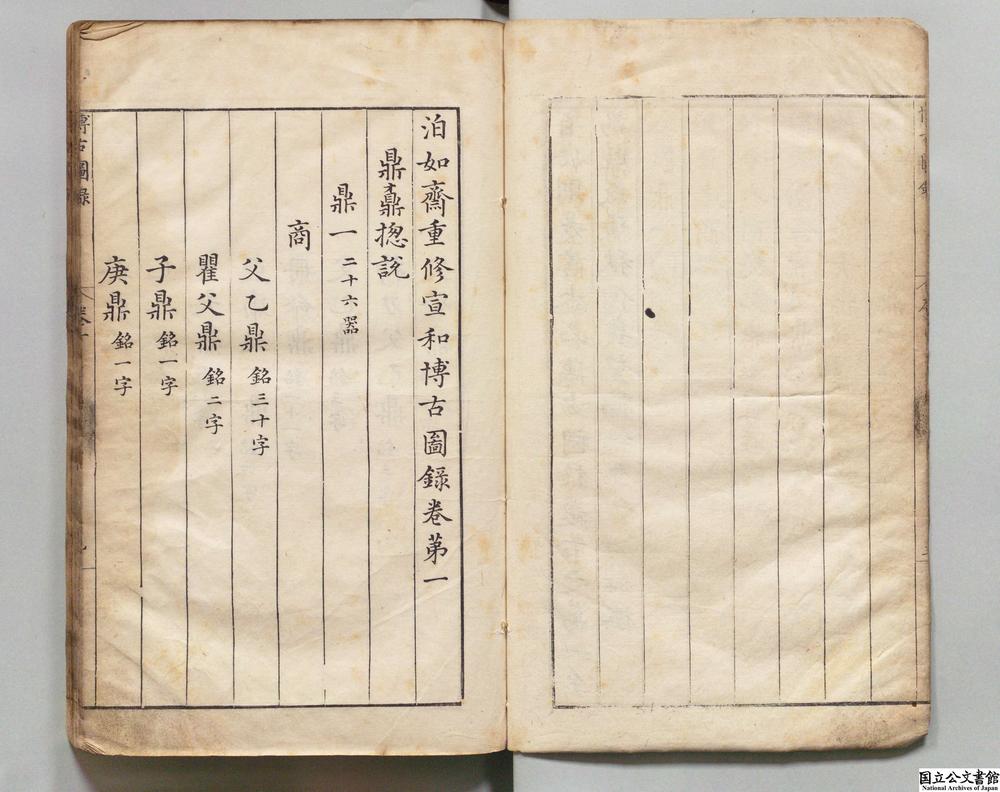 泊如齋重修宣和博古圖錄卷第一
鼎鼒揔說
鼎一 二十六器
商
父乙鼎 銘三十字
瞿父鼎 銘二字
子鼎 銘一字
庚鼎 銘一字
博古圖錄
卷一
国立公文書館
National Archives of Japan